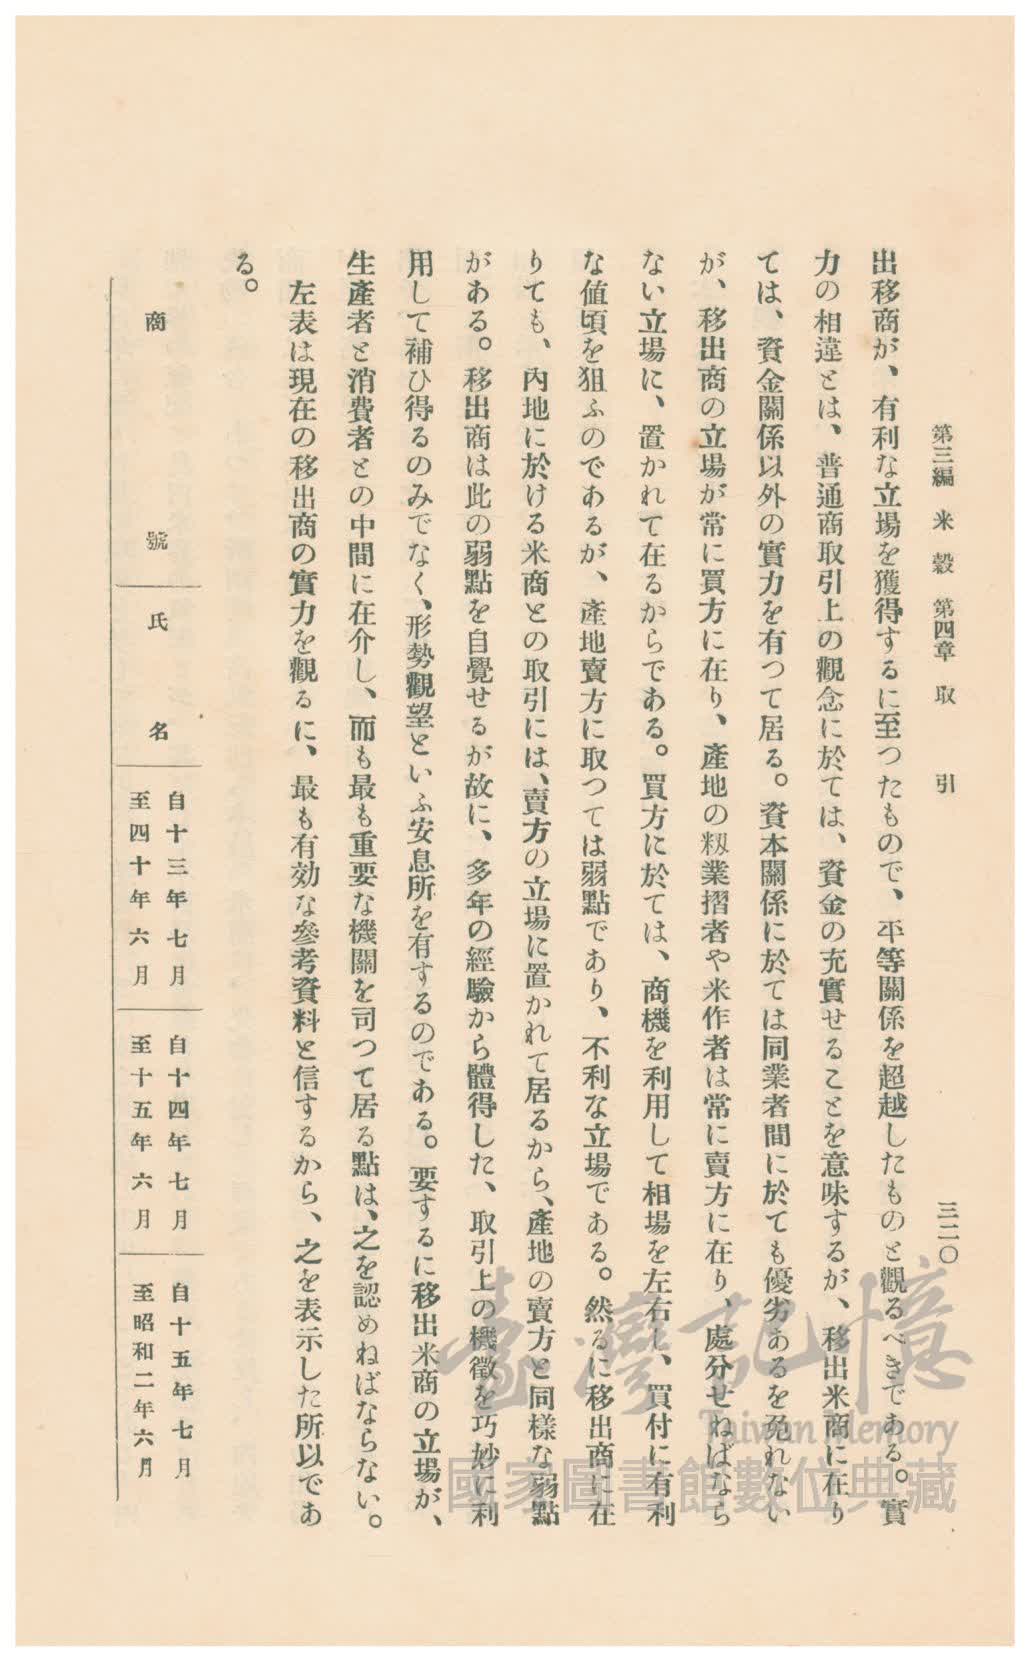 第三編 米穀 第四章 取引 三二〇
出移商が、有利な立場を獲得するに至つたもので、平等關係を超越したものと觀るべきである。實
力の相違とは、普通商取引上の觀念に於ては、資金の充實せることを意味するが、移出米商に在り
ては、資金關係以外の實力を有つて居る。資本關係に於ては同業者間に於ても優劣あるを免れない
が、移出商の立場が常に買方に在り、產地の籾業摺者や米作者は常に賣方に在り、處分せねばなら
ない立場に、置かれて在るからである。買方に於ては、商機を利用して相場を左右し、買付に有利
な値頃を狙ふのであるが、產地賣方に取つては弱點であり、不利な立場である。然るに移出商に在
りても、內地に於ける米商との取引には、賣方の立場に置かれて居るから、產地の賣方と同樣な弱點
がある。移出商は此の弱點を自覺せるが故に、多年の經驗から體得した、取引上の機徵を巧妙に利
用して補ひ得るのみでなく、形勢觀望といふ安息所を有するのである。要するに移出米商の立場が、
生產者と消費者との中間に在介し、而も最も重要な機關を司つて居る點は、之を認めねばならない。
左表は現在の移出商の實力を觀るに、最も有効な參考資料と信するから、之を表示した所以であ
る。
商號
氏名
自十三年七月
至四十年六月
自十四年七月
至十五年六月
自十五年七月
至昭和二年六月
臺灣記憶
Taiwan Memory
國家圖書館數位典藏